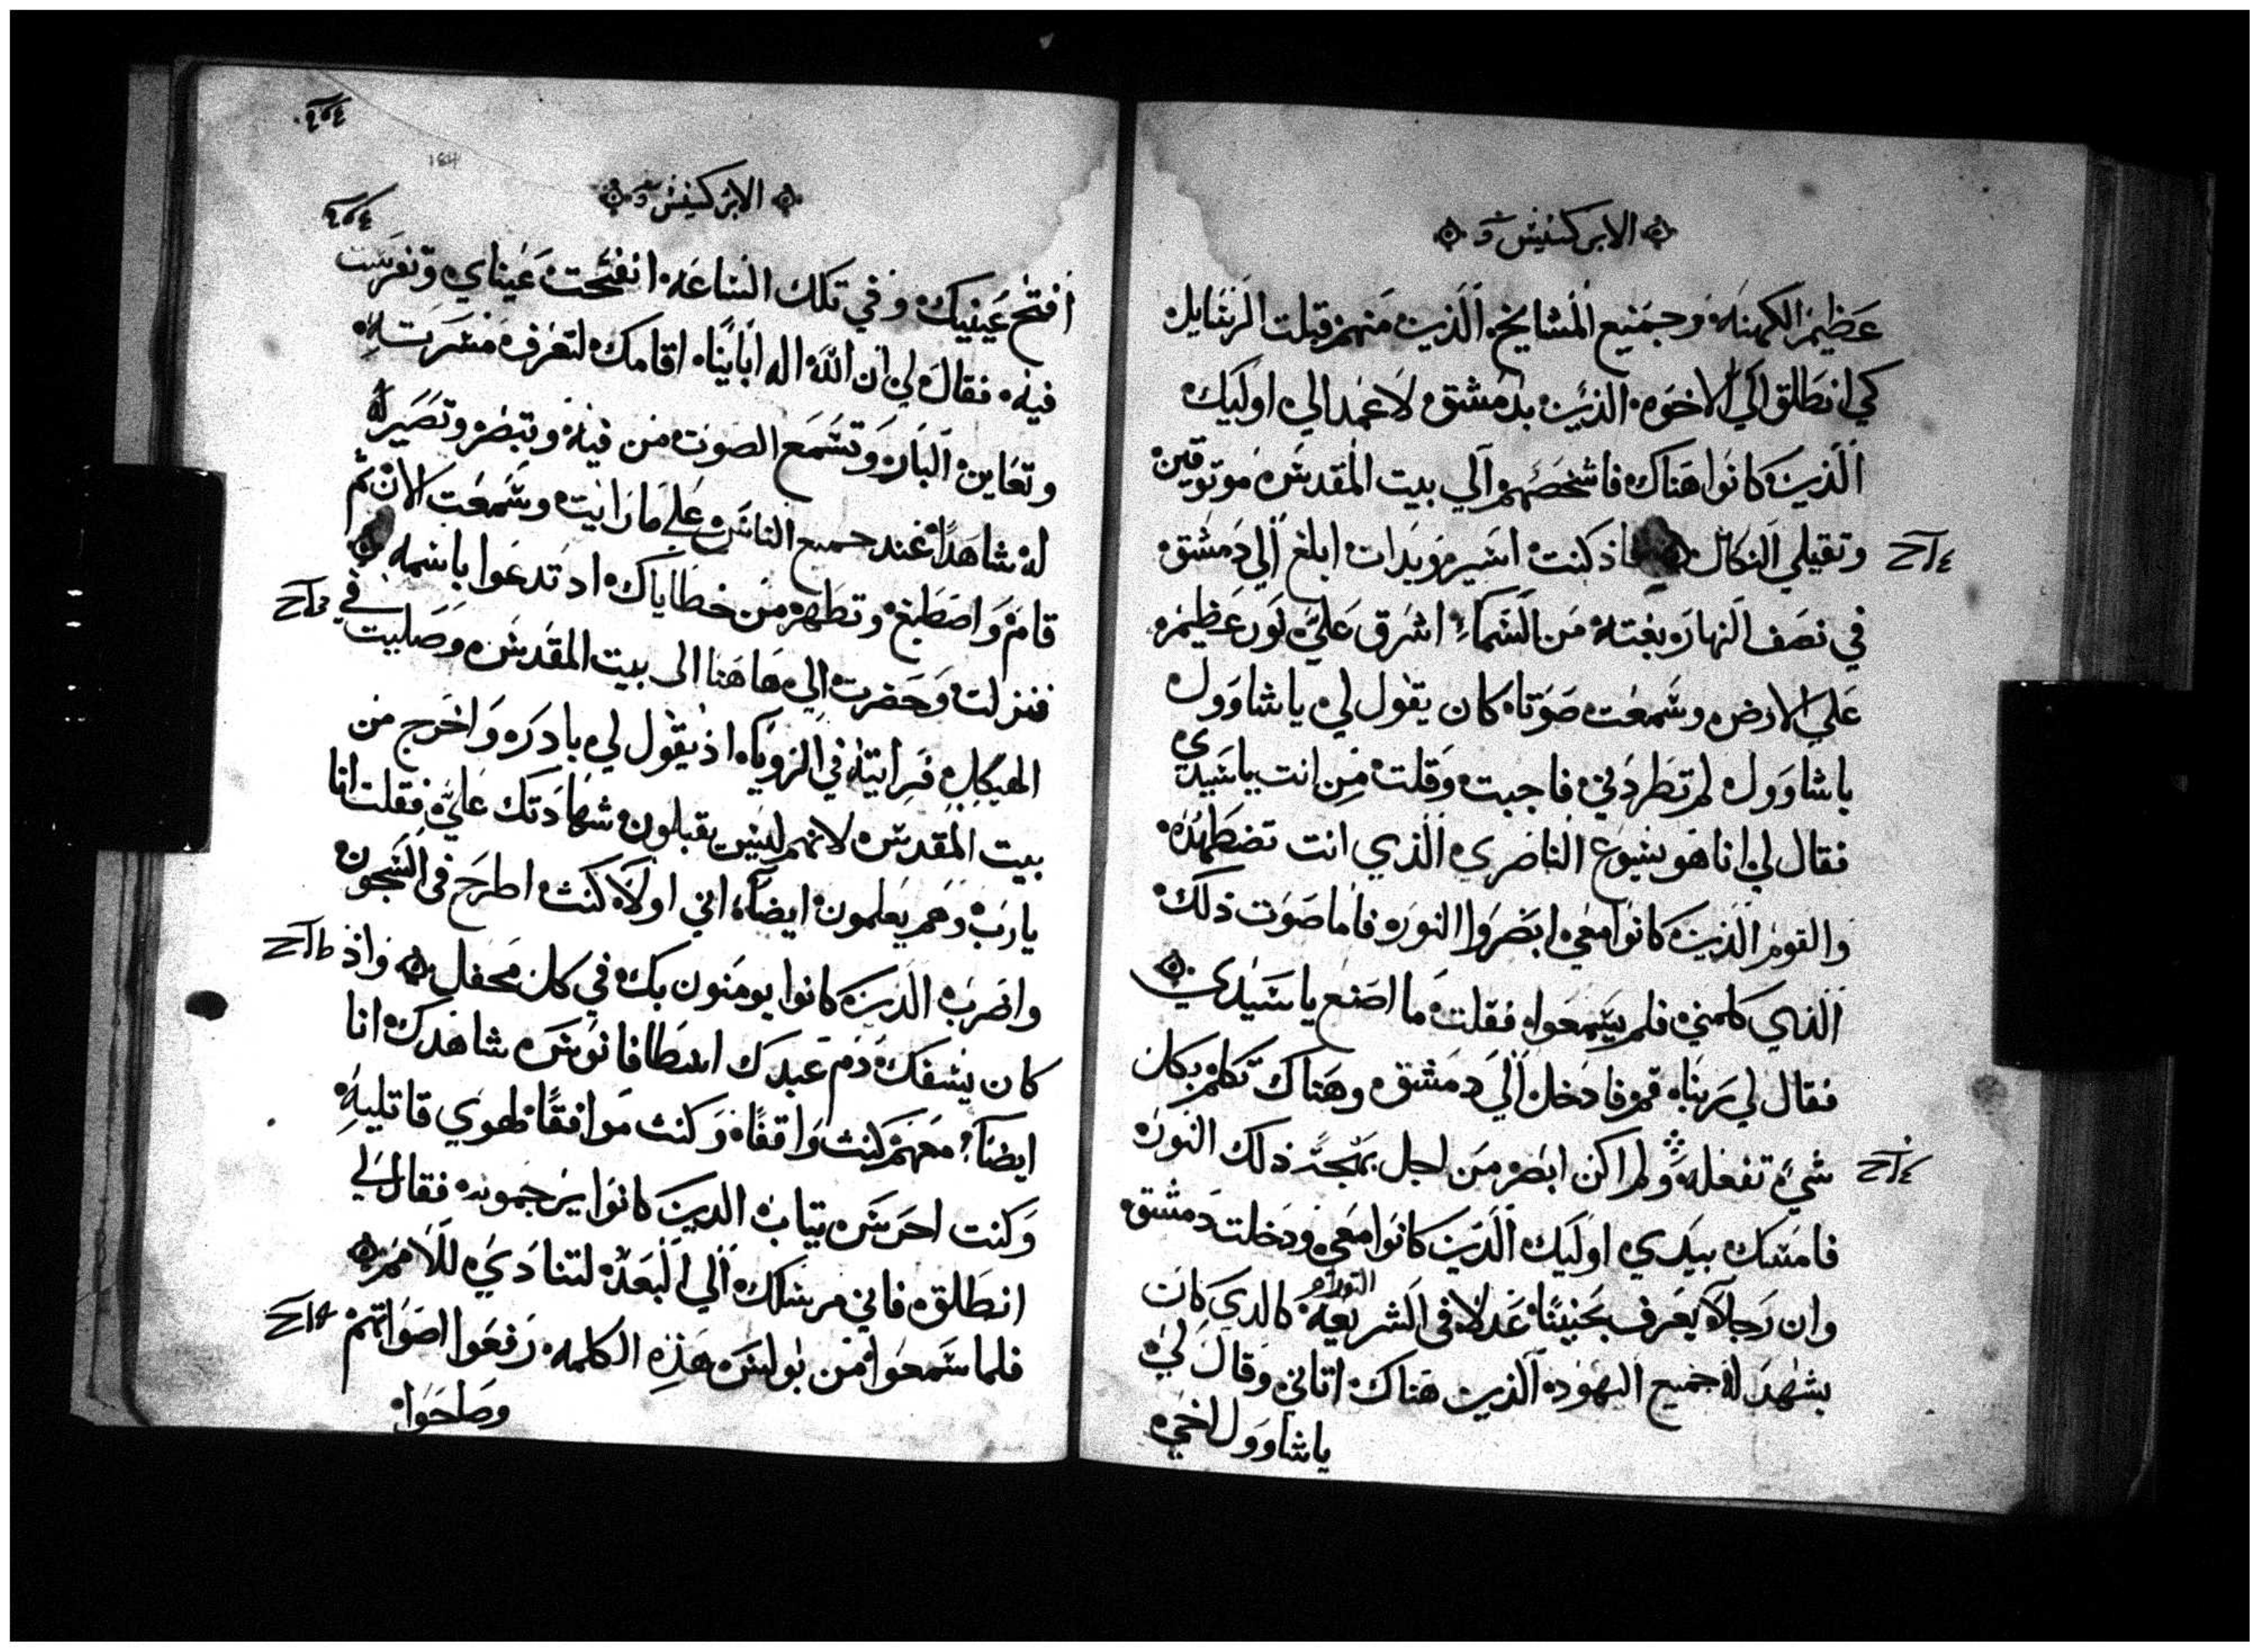 الابركسيس
عظيم الكهنه وجميع المشايخ الذين منهم قبلت الرسايل
كي انطلق الي الاخوه الذين بدمشق لاعمد الي اوليك
الذين كانوا هناك فاشخصهم الي بيت المقدس موتوقين
وتقبلي النكال فاذ كنت اسير وبدات ابلغ الي دمشق
في نصف النهار بغتة من السماء اشرق علي نور عظيم
علي الارض وسمعت صوتا كان يقول لي يا شاوول
يا شاوول لم تطردني فاجبت وقلت من انت يا سيدي
فقال لي انا هو يسوع الناصري الذي انت تضطهده
والقوم الذين كانوا معي ابصروا النور فاما صوت ذلك
الذي كلمني فلم يسمعوا فقلت ما اصنع يا سيدي
فقال لي ربنا قم فادخل الي دمشق وهناك تكلم بكل
شيء تفعله ولم اكن ابصر من اجل بهجة ذلك النور
فامسك بيدي اوليك الذين كانوا معي ودخلت دمشق
وان رجلا يعرف بحنينا عدلا في الشريعة التوراه كالذي كان
يشهد له جميع اليهود الذين هناك اتاني وقال لي
يا شاوول اخي
الابركسيس
افتح عينيك وفي تلك الساعه انفتحت عيناي وتفرست
فيه فقال لي ان الله اله اباينا اقامك لتعرف مسرته
وتعاين البار وتسمع الصوت من فيه وتبصر وتصير
له شاهدا عند جميع الناس علي ما رايت وسمعت الان ثم
قام واصطبغ وتطهر من خطاياك اد تدعوا باسمه
فنزلت وحضرت الي هاهنا الى بيت المقدس وصليت في
الهيكل فرايته في الرويا اذ يقول لي بادر واخرج من
بيت المقدس لانهم ليس يقبلون شهادتك علي فقلت انا
يارب وهم يعلمون ايضا اني اولا كنت اطرح في السجون
واضرب الذين كانوا يومنون بك في كل محفل واذ
كان يسفك دم عبدك اسطافانوس شاهدك انا
ايضا معهم كنت واقفا وكنت موافقا لهوي قاتليه
وكنت احرس تياب الدين كانوا يرجمونه فقال لي
انطلق فاني مرسلك الي البعد لتنادي للامم
فلما سمعوا من بولس هذه الكلمه رفعوا اصواتهم
وصاحوا